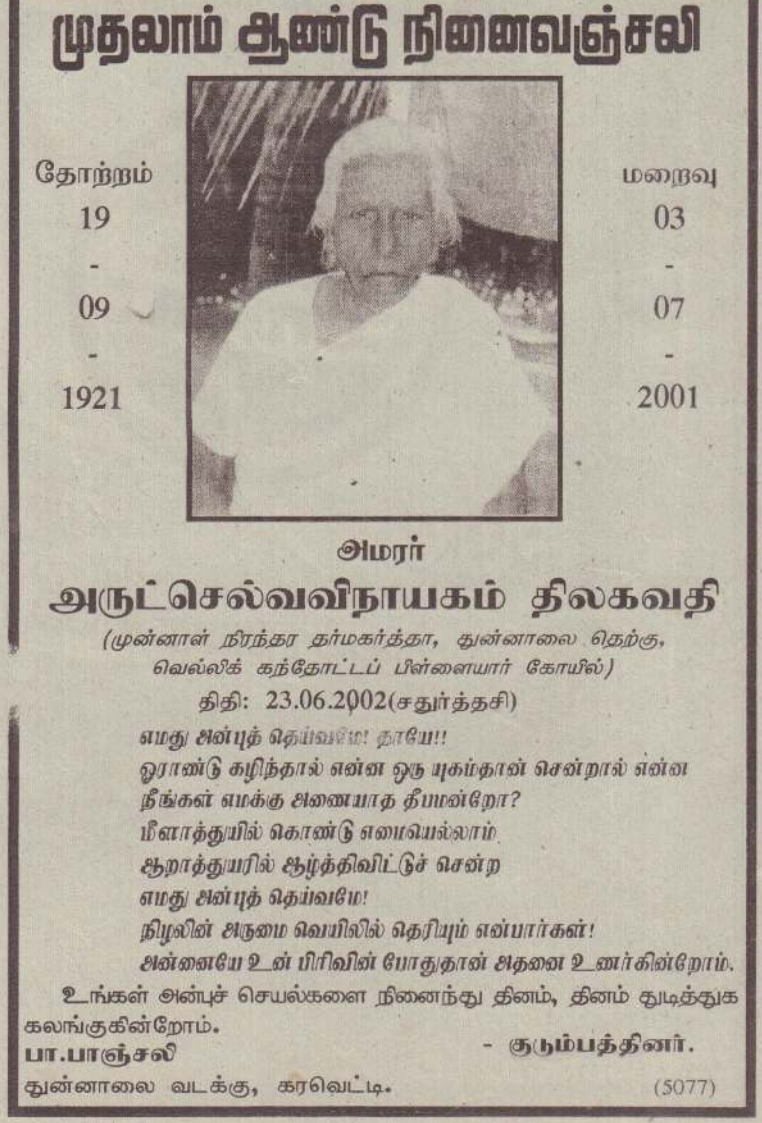 முதலாம் ஆண்டு நினைவஞ்சலி
தோற்றம்
19
-
09
-
1921
மறைவு
03
-
07
-
2001
அமரர்
அருட்செல்வவிநாயகம் திலகவதி
(முன்னாள் நிரந்தர தர்மகர்த்தா, துன்னாலை தெற்கு,
வெல்லிக் கந்தோட்டப் பிள்ளையார் கோயில்)
திதி: 23.06.2002(சதுர்த்தசி)
எமது அன்புத் தெய்வமே! தாயே!!
ஓராண்டு கழிந்தால் என்ன ஒரு யுகம்தான் சென்றால் என்ன
நீங்கள் எமக்கு அணையாத தீபமன்றோ?
மீளாத்துயில் கொண்டு எமையெல்லாம்
ஆறாத்துயரில் ஆழ்த்திவிட்டுச் சென்ற
எமது அன்புத் தெய்வமே!
நிழலின் அருமை வெயிலில் தெரியும் என்பார்கள்!
அன்னையே உன் பிரிவின் போதுதான் அதனை உணர்கின்றோம்.
உங்கள் அன்புச் செயல்களை நினைந்து தினம், தினம் துடித்துக
கலங்குகின்றோம்.
பா.பாஞ்சலி - குடும்பத்தினர்.
துன்னாலை வடக்கு, கரவெட்டி. (5077)